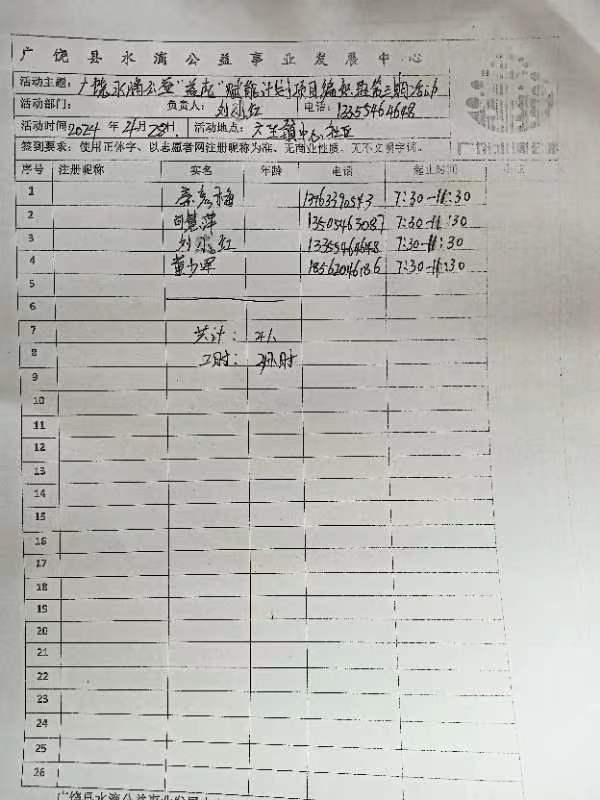 广饶县水滴公益事业发展中心
活动主题：广饶水滴公益"益起"赋能计划项目编织班第三期活动
活动部门： 负责人：刘水红 电话：13355464648
活动时间：2024年4月25日 活动地点：大王镇中心社区
签到要求：使用正体字、以志愿者网注册昵称为准、无商业性质、无不文明字词。
序号 注册昵称 实名 年龄 电话 起止时间
1 7:30-11:30
2 慧萍 13505463087 7:30-11:30
3 刘水红 13355464648 7:30-11:30
4 董少军 18562046186 7:30-11:30
5
6
7 共计： 4人
8 工时： 小时
9
10
11
12
13
14
15
16
17
18
19
20
21
22
23
24
25
26
广饶县水滴公益事业发展中